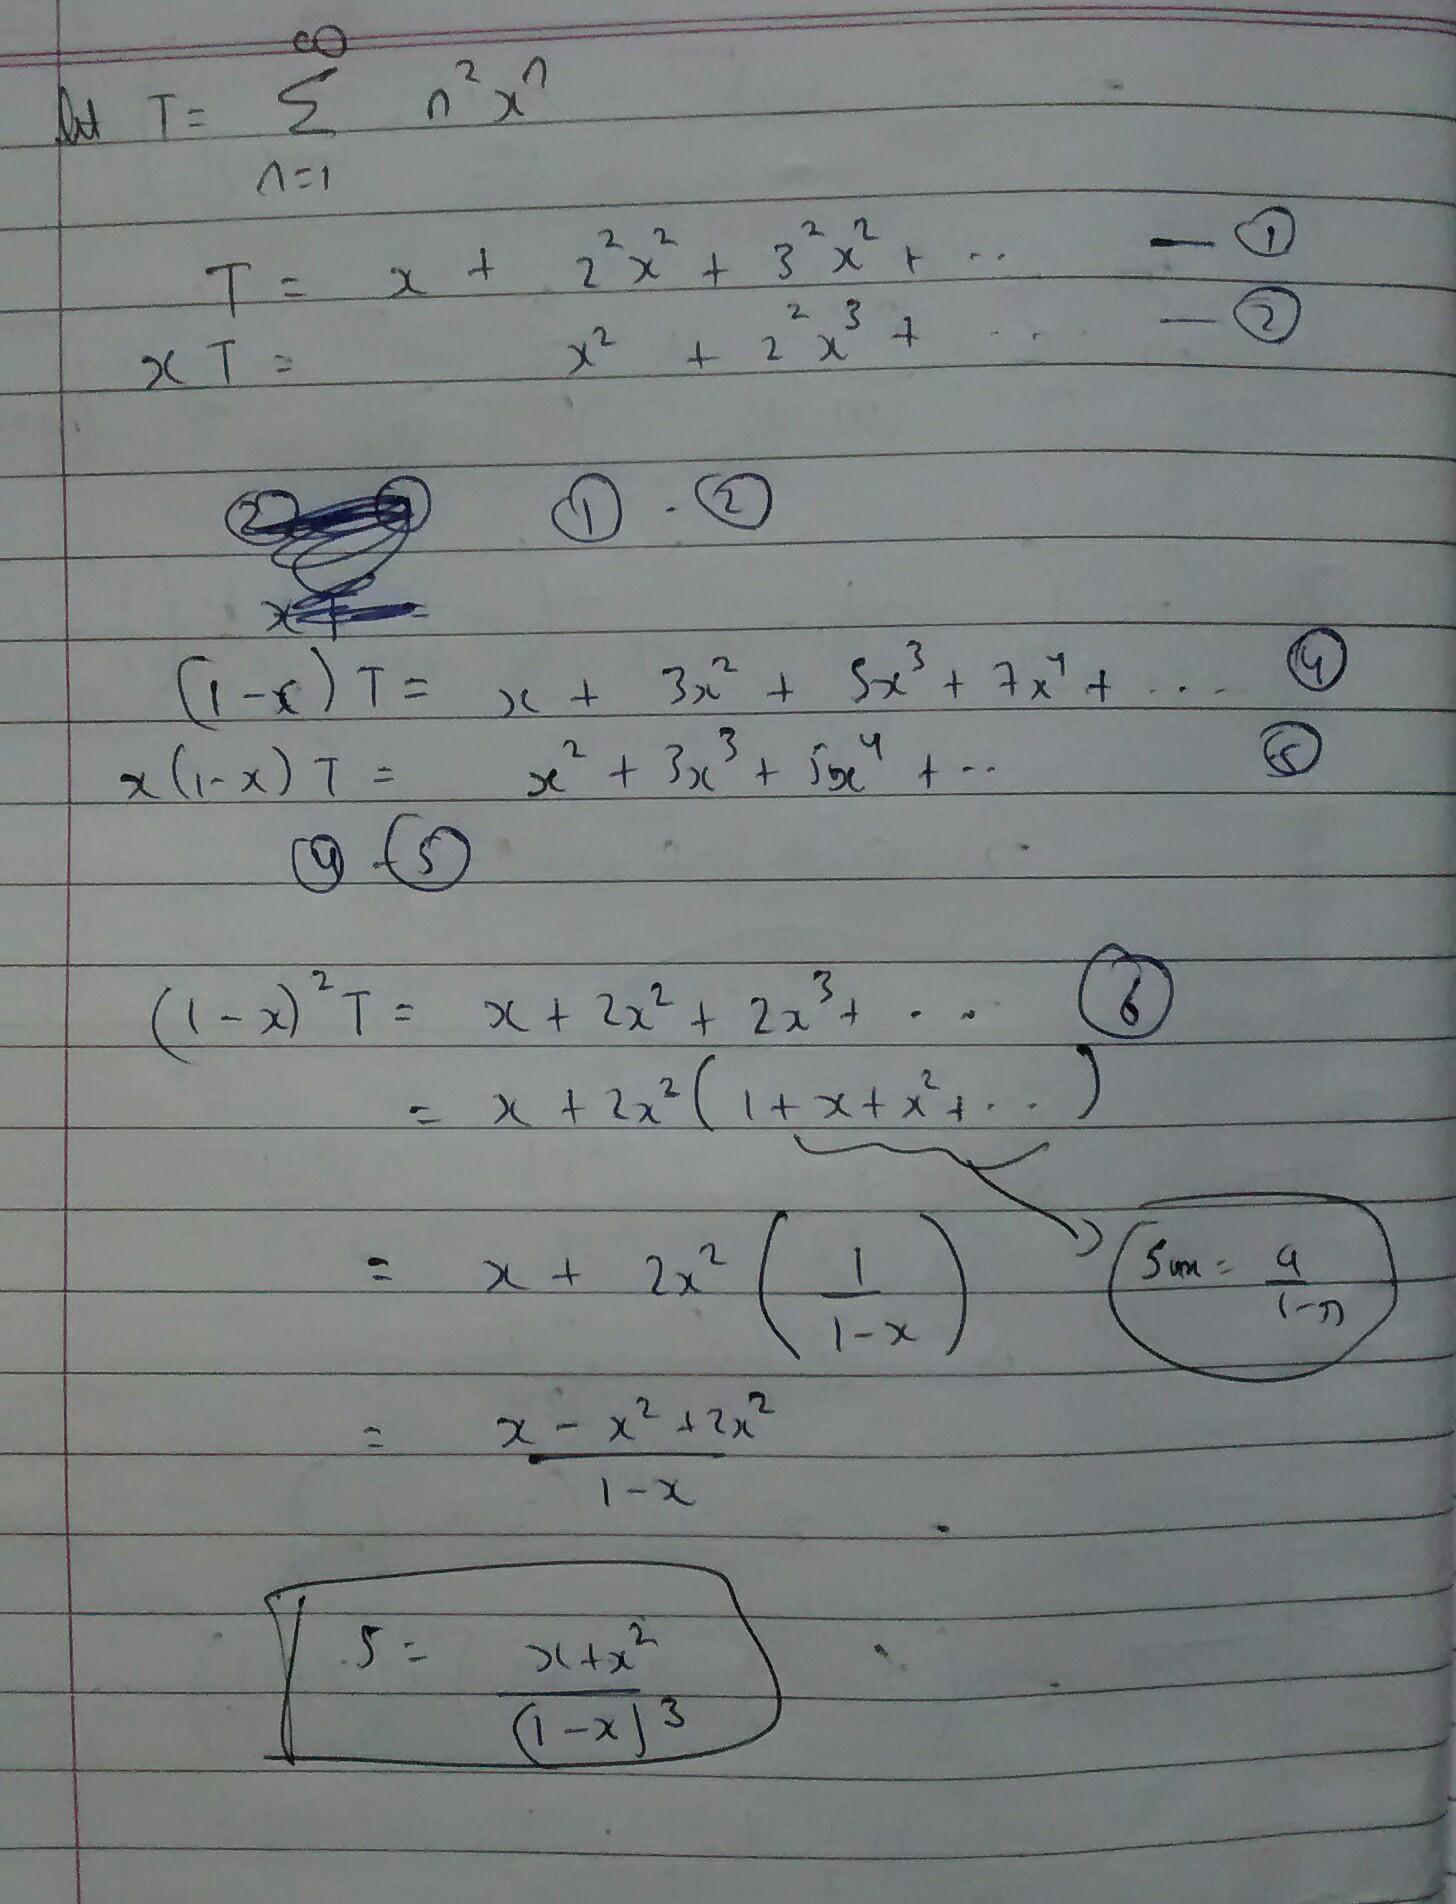 let T = ∞ Σ n=1 n² xⁿ
T = x + 2²x² + 3²x² + .. — ①
x T = x² + 2²x³ + ... — ②
① - ②
(1-x) T = x + 3x² + 5x³ + 7x⁴ + ... ④
x(1-x) T = x² + 3x³ + 5x⁴ + .. ⑤
④ - ⑤
(1-x)² T = x + 2x² + 2x³ + .. ⑥
= x + 2x² ( 1 + x + x² + ... )
= x + 2x² ( 1 / 1-x ) Sum = a / 1-r
= x - x² + 2x² / 1-x
S = x + x² / (1-x)³